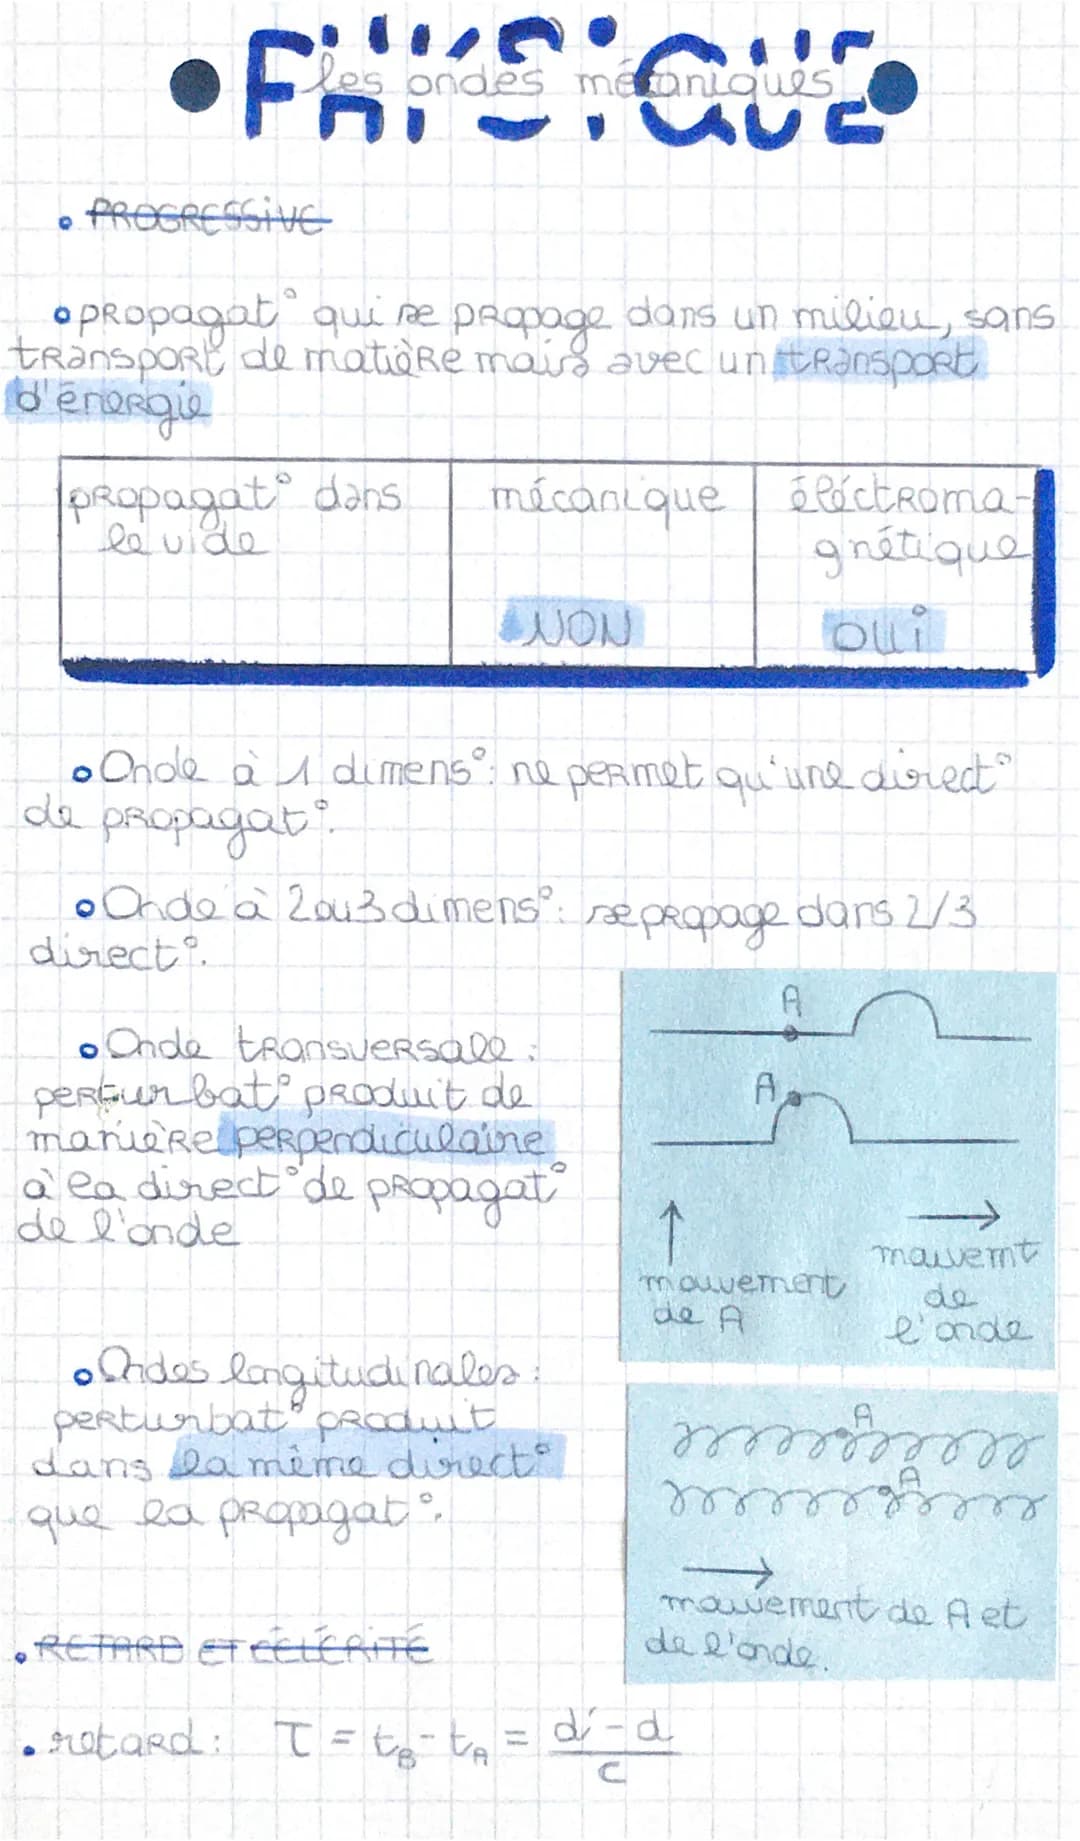 PHYSIQUE
les ondes mécaniques
• PROGRESSIVE
• PROPAGAT° qui se PROPAGE dans un milieu, sans
TRANSPORT de matière mais avec un TRANSPORT
d'énergie
PROPAGAT° dans
le vide
mécanique
NON
éléctroma-
gnétique
OUi
• Onde à 1 dimens°: ne permet qu'une direct°
de propagat°.
• Onde à 2 ou 3 dimens°: se propage dans 2/3
direct°.
• Onde transversale :
perturbat° produit de
manière perpendiculaire
à la direct° de propagat°
de l'onde
A
A
mouvement
de A
mouvemt
de
l'onde
• Ondes longitudinales :
perturbat° produit
dans la même direct°
que la propagat°.
A
A
mouvement de A et
de l'onde.
• RETARD ET CÉLÉRITÉ
• retard : T = t_B - t_A = d' - d / c